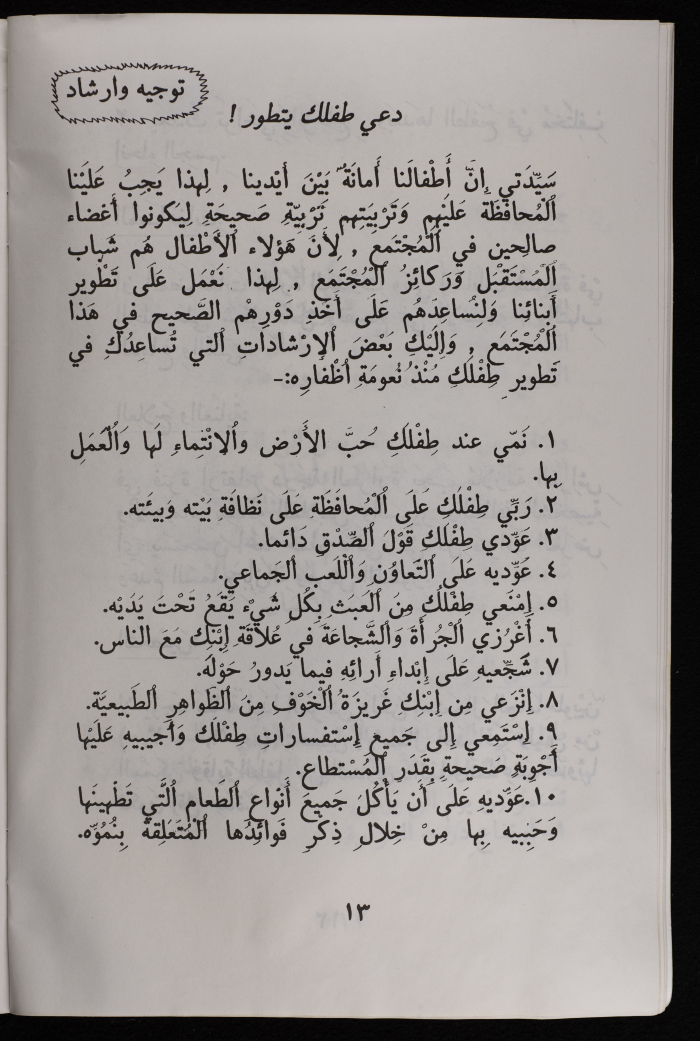 توجيه وارشاد
دعي طفلك يتطور !
سَيِّدَتي إِنَّ أَطْفالَنا أَمانَةٌ بَيْنَ أَيْدينا , لِهذا يَجِبُ عَلَيْنا
اَلْمُحافَظَة عَلَيْهِم وَتَرْبِيَتِهم تَرْبِيَّةِ صَحيحَةٍ لِيَكونوا أَعْضاء
صالِحين في اَلْمُجْتَمَعِ , لِأَنَ هَؤلاء الأَطْفال هُم شَباب
اَلْمُسْتَقْبَل وَرَكائِزُ اَلْمُجْتَمَع , لِهذا نَعْمَل عَلَى تَطْوير
أَبنائِنا وَلِنُساعِدَهُم عَلَى أَخذِ دَوْرِهْم الصَّحيح في هَذا
اَلْمُجْتَمَع , وَإِلَيْكِ بَعْضَ اَلإِرْشاداتِ اَلتي تُساعِدُكِ في
تَطوير طِفْلَكِ مُنْذُ نُعومَةِ اَظْفارِه:-
١. نَمّي عند طِفْلَكِ حُبَّ الأَرْض واَلاِنْتِماءِ لَها وَاَلْعَمَلِ
بِها.
٢. رَبّي طِفْلَكِ عَلَى اَلْمُحافَظَةِ عَلَى نَظافَةِ بَيْته وَبيئَته.
٣. عَوِّدي طِفْلَكِ قَوْلَ اَلصِّدْقِ دَائما.
٤. عَوِّديه عَلَى اَلتَعاوُنِ وَاَللَعب اَلجَماعي.
٥. اِمْنَعي طِفْلَكِ مِنَ اَلعَبَث بِكُل شَيْء يَقَعُ تَحْتَ يَدَيْه.
٦. أَغْرُزي اَلْجُرأَةَ وَاَلشَّجاعَةَ في عُلاقَةِ إِبْنِكِ مَعَ الناس.
٧. شَجِّعيهِ عَلَى إِبْداءِ أَرائِهِ فيما يَدورُ حَوْلَه.
٨. اِنْزَعي مِن اِبْنِكِ غَريزَةُ اَلْخَوْفِ مِنَ اَلظَواهِرِ اَلطَبيعيَّة.
٩. اِسْتَمِعي إِلى جَميعِ إِسْتفسارات طِفْلَك وَأَجيبيهِ عَلَيْها
أَجْوِبَةٍ صَحيحَةٍ بِقَدَرِ اَلْمُستطاع.
١٠.عَوِّديهِ عَلَى أَن يَأْكُلَ جَميعَ أَنْواعِ اَلطَعامِ اَلَّتي تَطْهينَها
وَحَبِبيهِ بِها مِنْ خِلالِ ذِكْرِ فَوائِدُها اَلْمُتَعَلِقَة بِنُمُوِّه.
١٣